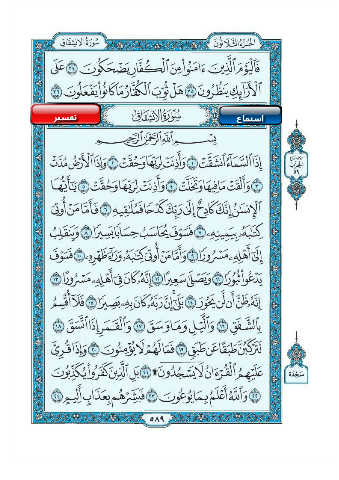 الجزء الثلاثون
سورة الانشقاق
فَالْيَوْمَ الَّذِينَ ءَامَنُوا مِنَ الْكُفَّارِ يَضْحَكُونَ ٣٤ عَلَى
الْأَرَائِكِ يَنظُرُونَ ٣٥ هَلْ ثُوِّبَ الْكُفَّارُ مَا كَانُوا يَفْعَلُونَ ٣٦
استماع
سُورَةُ الانشِقَاقِ
تفسير
بِسْمِ اللَّهِ الرَّحْمَٰنِ الرَّحِيمِ
إِذَا السَّمَاءُ انشَقَّتْ ١ وَأَذِنَتْ لِرَبِّهَا وَحُقَّتْ ٢ وَإِذَا الْأَرْضُ مُدَّتْ
٣ وَأَلْقَتْ مَا فِيهَا وَتَخَلَّتْ ٤ وَأَذِنَتْ لِرَبِّهَا وَحُقَّتْ ٥ يَا أَيُّهَا
الْإِنسَانُ إِنَّكَ كَادِحٌ إِلَى رَبِّكَ كَدْحًا فَمُلَاقِيهِ ٦ فَأَمَّا مَنْ أُوتِيَ
كِتَابَهُ بِيَمِينِهِ ٧ فَسَوْفَ يُحَاسَبُ حِسَابًا يَسِيرًا ٨ وَيَنقَلِبُ
إِلَى أَهْلِهِ مَسْرُورًا ٩ وَأَمَّا مَنْ أُوتِيَ كِتَابَهُ وَرَاءَ ظَهْرِهِ ١٠ فَسَوْفَ
يَدْعُوا ثُبُورًا ١١ وَيَصْلَى سَعِيرًا ١٢ إِنَّهُ كَانَ فِي أَهْلِهِ مَسْرُورًا ١٣
إِنَّهُ ظَنَّ أَن لَّن يَحُورَ ١٤ بَلَى إِنَّ رَبَّهُ كَانَ بِهِ بَصِيرًا ١٥ فَلَا أُقْسِمُ
بِالشَّفَقِ ١٦ وَاللَّيْلِ وَمَا وَسَقَ ١٧ وَالْقَمَرِ إِذَا اتَّسَقَ ١٨
لَتَرْكَبُنَّ طَبَقًا عَن طَبَقٍ ١٩ فَمَا لَهُمْ لَا يُؤْمِنُونَ ٢٠ وَإِذَا قُرِئَ
عَلَيْهِمُ الْقُرْءَانُ لَا يَسْجُدُونَ ۩ ٢١ بَلِ الَّذِينَ كَفَرُوا يُكَذِّبُونَ
٢٢ وَاللَّهُ أَعْلَمُ بِمَا يُوعُونَ ٢٣ فَبَشِّرْهُم بِعَذَابٍ أَلِيمٍ ٢٤
سَجْدَة
٥٨٩